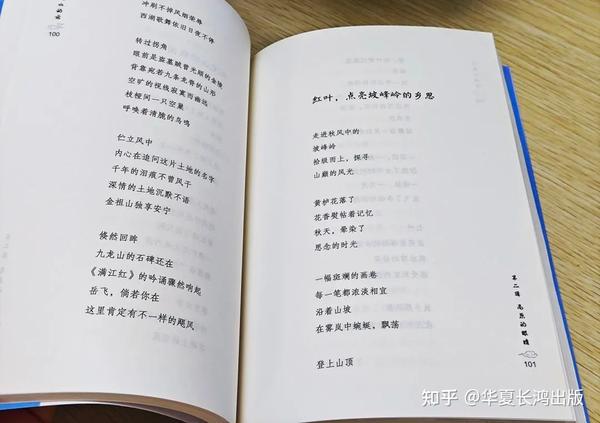 冲刷不掉风烟荣辱
西湖歌舞依旧日夜不停
转过拐角
眼前是盗墓贼曾光顾的金陵
背靠宛若九条龙脊的山形
空旷的视线寂寞而幽远
枝桠间一只空巢
呼唤着清脆的鸟鸣
伫立风中
内心在追问这片土地的名字
千年的泪痕不曾风干
深情的土地沉默不语
金祖山独享安宁
倏然回眸
九龙山的石碑还在
《满江红》的吟诵骤然响起
岳飞，倘若你在
这里肯定有不一样的飓风
100
红叶，点亮坡峰岭的乡思
走进秋风中的
坡峰岭
拾级而上，探寻
山巅的风光
黄栌花落了
花香熨帖着记忆
秋天，晕染了
思念的时光
一幅斑斓的画卷
每一笔都浓淡相宜
沿着山坡
在雾岚中蜿蜒，飘荡
登上山顶
第二辑 高原的眼睛
101
知乎 @华夏长鸿出版